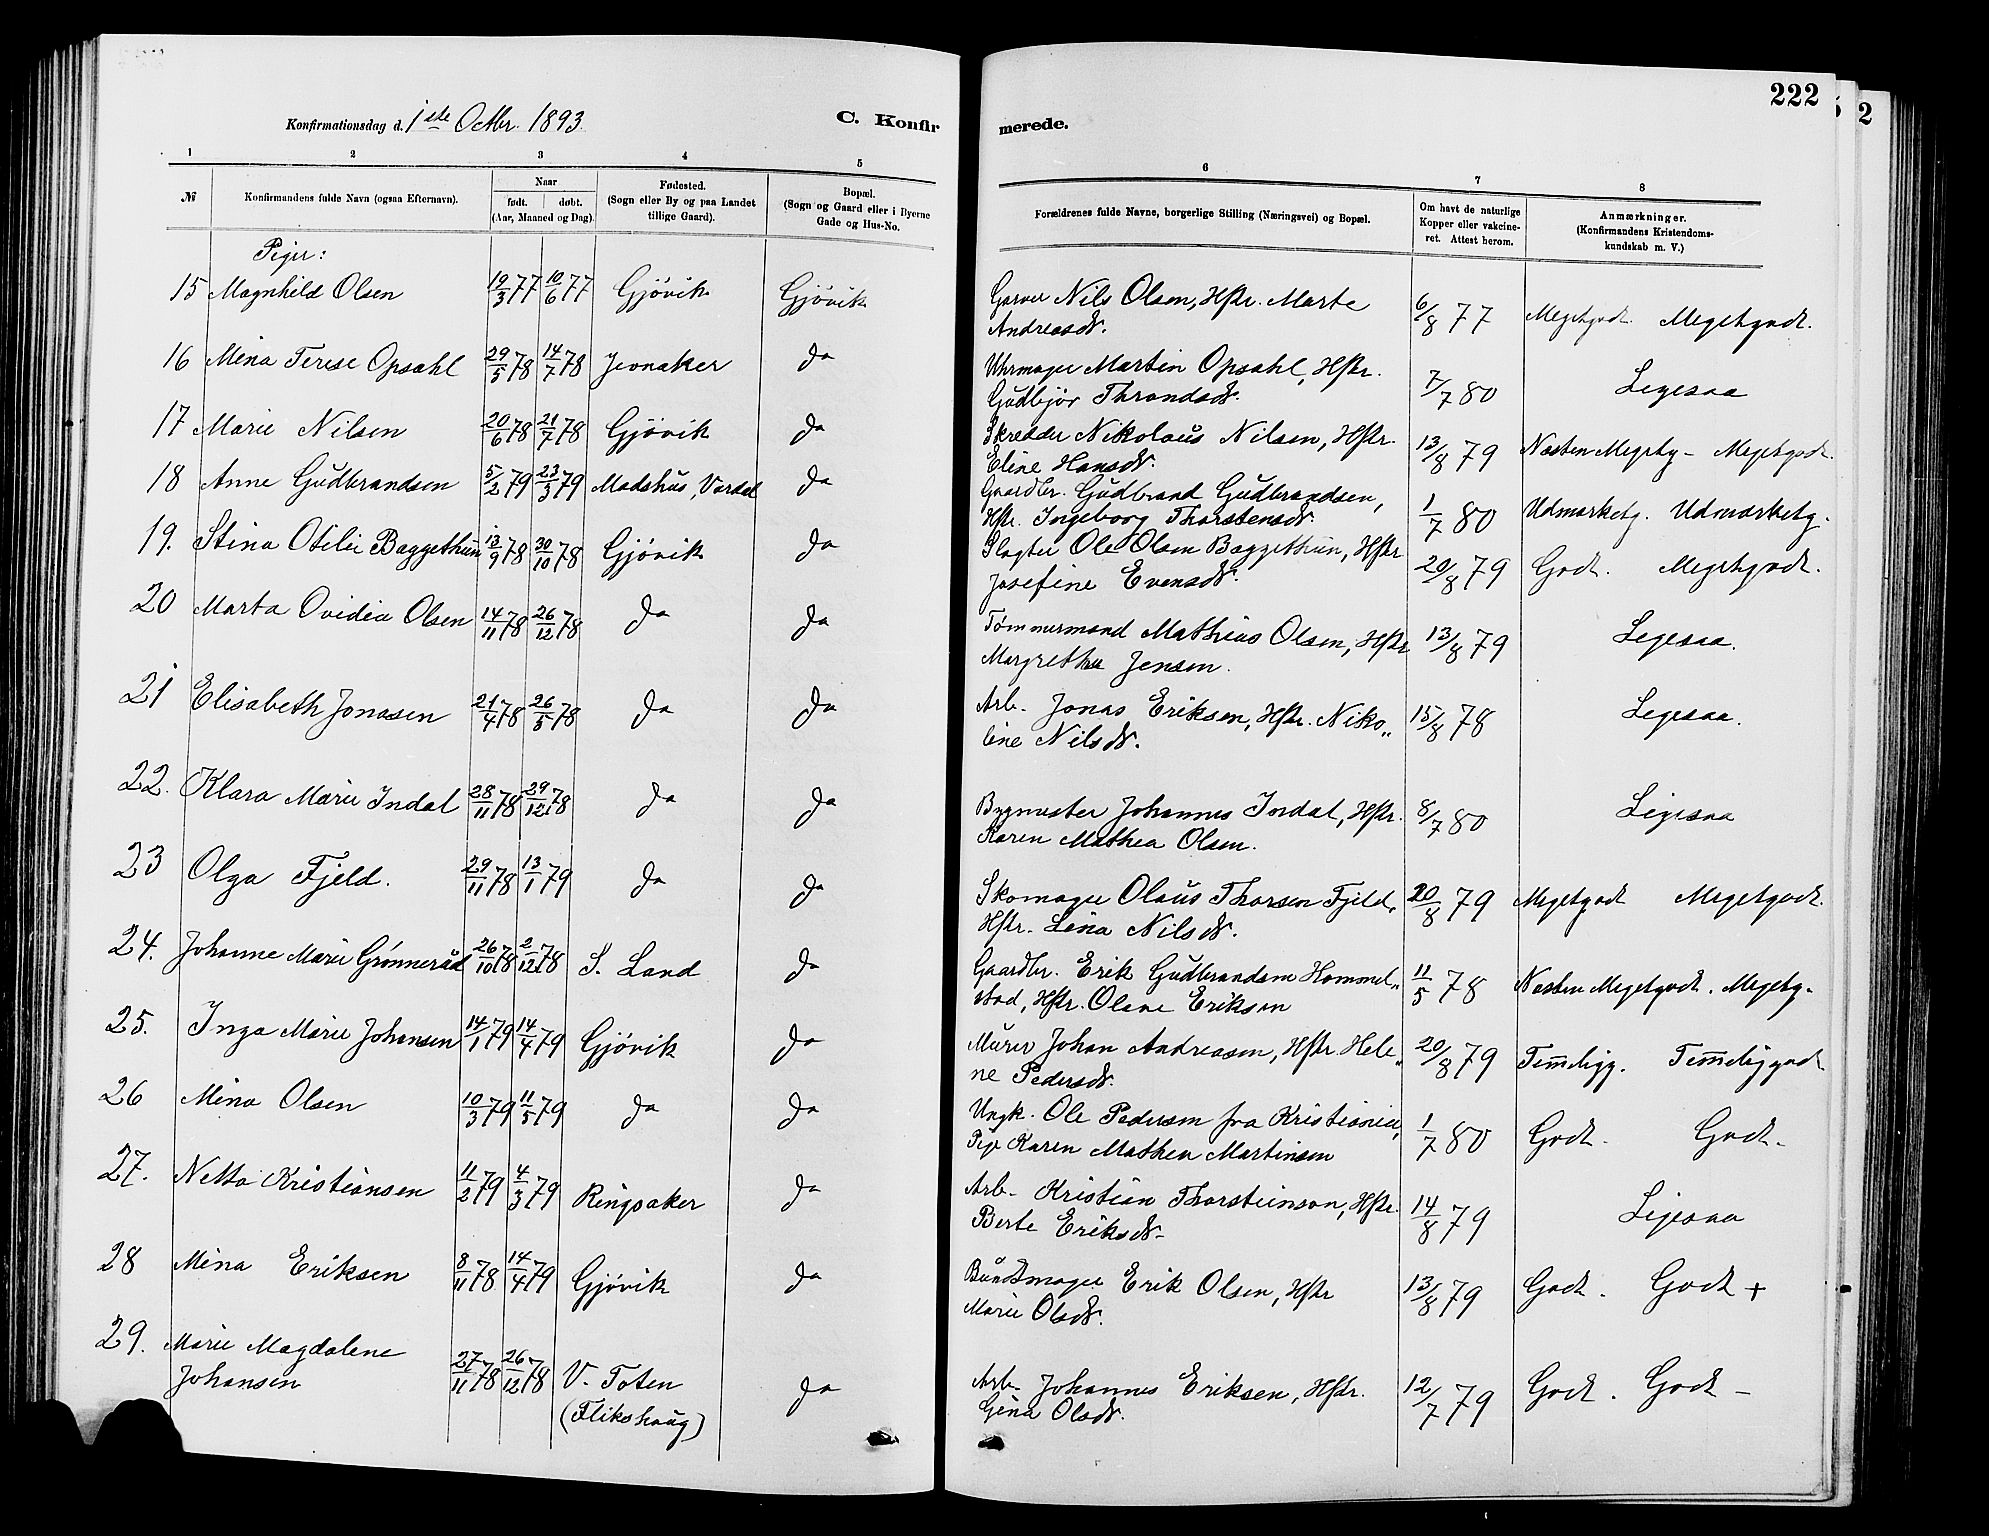 222
2
Konfirmationsdag d. 1ste Octbr. 1893.
C. Konfirmerede.
1 2 3 4 5 6 7 8
№ Konfirmandens fulde Navn (ogsaa Efternavn). Naar født. døbt. (Aar, Maaned og Dag). Fødested. (Sogn eller By og paa Landet tillige Gaard). Bopæl. (Sogn og Gaard eller i Byerne Gade og Hus-No. Forældrenes fulde Navne, borgerlige Stilling (Næringsvei) og Bopæl. Om havt de naturlige Kopper eller vakcineret. Attest herom. Anmærkninger. (Konfirmandens Kristendomskundskab m. V.)
Piger:
15 Magnhild Olsen 19/3 77 10/6 77 Gjövik Gjövik Garver Nils Olsen, Hstr. Marte 6/8 77 Megetgodt. Megetgodt.
Andreasdt.
16 Mina Terese Opsahl 29/5 78 14/7 78 Jevnaker Do Uhrmager Martin Opsahl, Hstr. 7/7 80 Ligesaa
Gudbjör Throndsdt.
17 Marie Nilsen 20/6 78 21/7 78 Gjövik Do Skredder Nikolaus Nilsen, Hstr. 13/8 79 Næsten Megetg - Megetgodt.
Eline Hansdt.
18 Anne Gudbrandsen 5/2 79 23/3 79 Madshus, Vardal Do Gaardbr. Gudbrand Gudbrandsen, 1/7 80 Udmærketg. Udmærketg.
Hstr. Ingeborg Thorstensdt.
19. Stina Otilie Baggethun 13/9 78 30/10 78 Gjövik Do Slagter Ole Olsen Baggethun, Hstr 20/8 79 Godt. Megetgodt.
Josefine Evensdt.
20 Marta Ovidia Olsen 14/11 78 26/12 78 Do Do Tömmermand Mathias Olsen, Hstr 13/8 79 Ligesaa.
Margrethe Jensen.
21 Elisabeth Jonasen 21/4 78 26/5 78 Do Do Arb. Jonas Eriksen, Hstr. Niko„ 15/8 78 Ligesaa.
line Nilsdt.
22. Klara Marie Indal 28/11 78 29/12 78 Do Do Bygmester Johannes Indal, Hstr. 8/7 80 Ligesaa
Karen Mathea Olsen.
23 Olga Fjeld. 29/11 78 13/1 79 Do Do Skomager Olaus Thorsen Fjeld, 20/8 79 Megetgodt Megetgodt.
Hstr. Lina Nilsdt.
24. Johanne Marie Grønneråd 26/10 78 2/12 78 S. Land Do Gaardbr. Erik Gudbrandsen Hommel„ 11/5 78 Næsten Megetgodt. Megetg.
stad, Hstr. Olene Eriksen
25. Inga Marie Johansen 14/1 79 14/4 79 Gjövik Do Murer Johan Andreasen, Hstr. Hele„ 20/8 79 Temmeligg. Temmeliggodt
ne Pedersdt.
26 Mina Olsen 10/3 79 11/5 79 Do Do Ungk. Ole Pedersen fra Kristiania, 1/7 80 Godt. Godt.
Pige Karen Mathea Martinsen
27. Netta Kristiansen 11/2 79 4/3 79 Ringsaker Do Arb. Kristian Thorsteinson, Hstr. 14/8 79 Ligesaa
Berte Eriksdt.
28 Mina Eriksen 8/11 78 14/4 79 Gjövik Do Bundtmager Erik Olsen, Hstr 13/8 79 Godt. Godt +
Marie Olsdt.
29. Marie Magdalene
Johansen 27/11 78 26/12 78 V. Toten Do Arb. Johannes Eriksen, Hstr. 12/7 79 Godt. Godt -
(Flikshaug) Gina Olsdt.